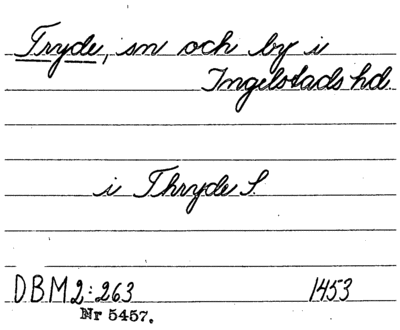 Tryde, sn och by i
Ingelstads hd.
i Thryde S.
DBM 2:263 1453
Nr 5457.